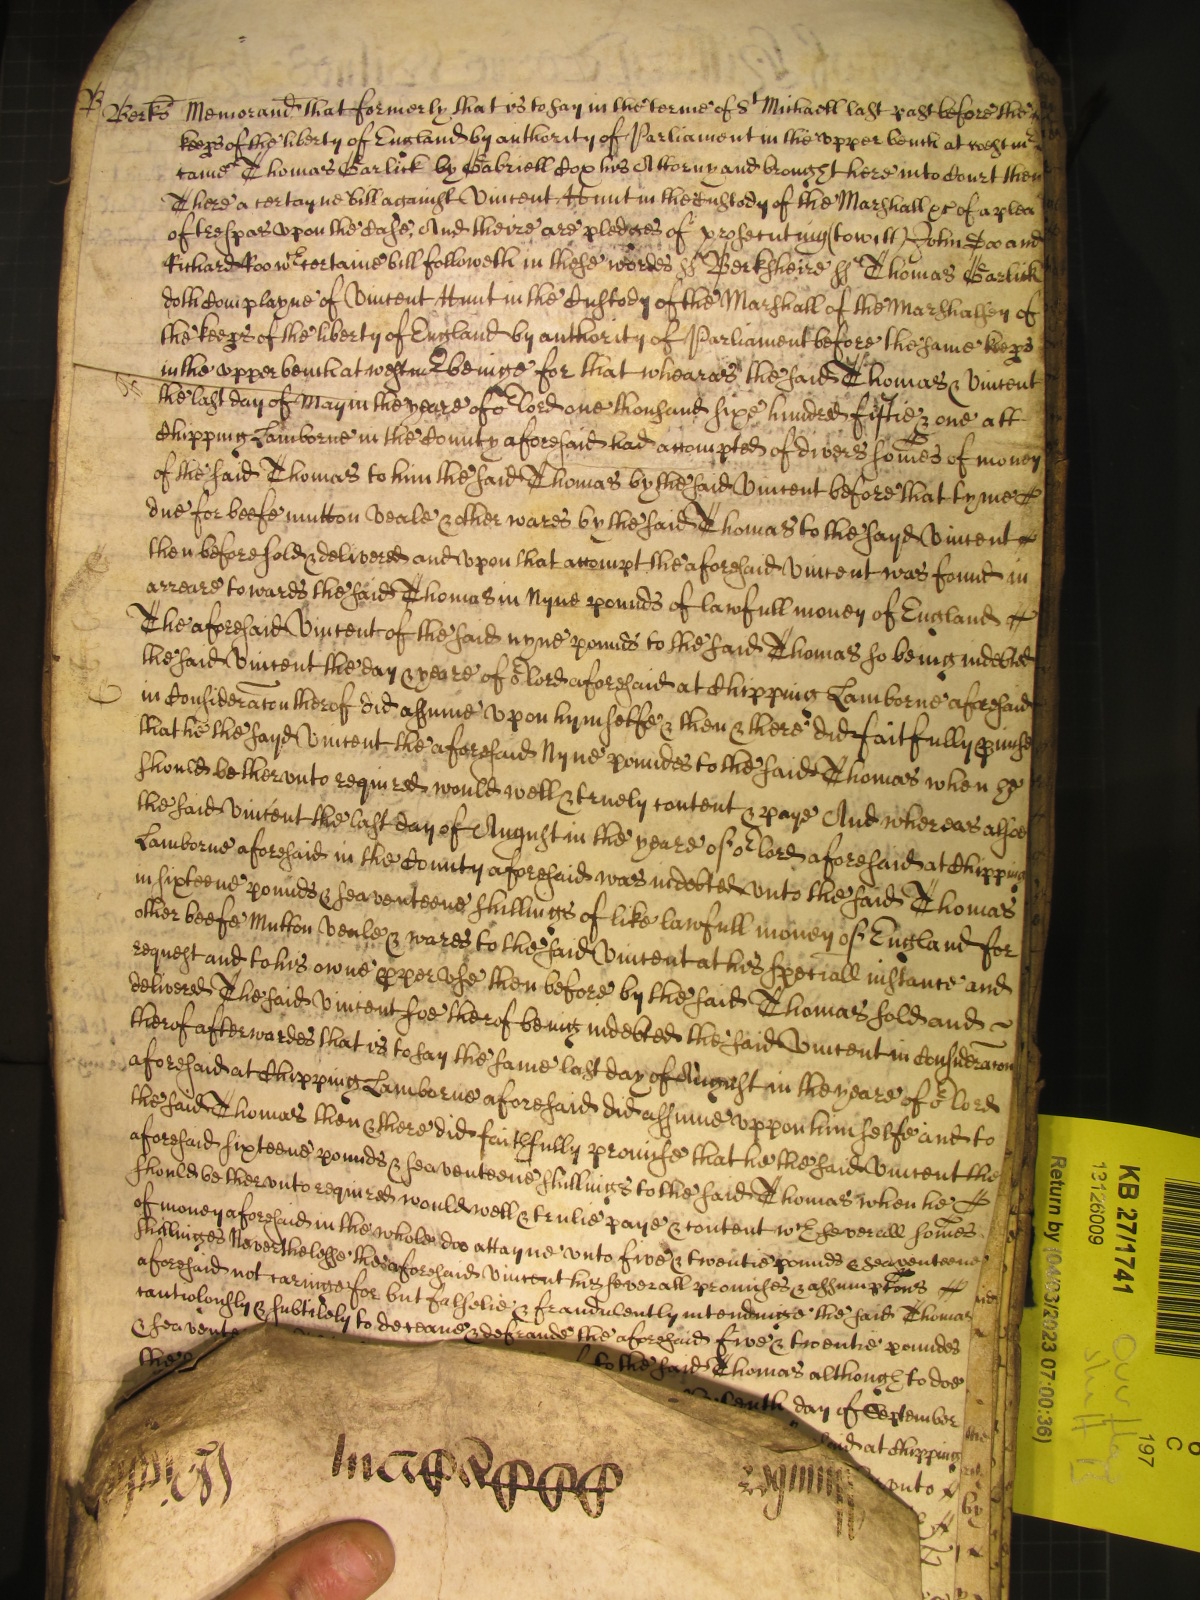 Berks Memorand that formerly that is to say in the terme of St Michaell last past before the
keeps of the liberty of England by authority of Parliament in the upper bench at westmr
came Thomas Garlick by Gabriell Cox his Attorny and brought here into Court then
There a certayne bill against Vincent Hunt in the Custody of the Marshall &c of a plea
of trespas upon the Case, And there are pledges of prosecuting (to witt) John Doo and
Richard Roo wch certaine bill followeth in these wordes ss Berksheire ss Thomas Garlick
doth Complayne of Vincent Hunt in the Custody of the Marshall of the Marshalsey of
the keeps of the liberty of England by authority of Parliament before the same keeps
in the upper bench at westmr beinge for that wheareas the said Thomas & Vincent
the last day of May in the yeare of or lord one thousand sixe hundred fiftie & one att
Chipping Lamborne in the County aforesaid had accompted of divers somes of money
of the said Thomas to him the said Thomas by the said Vincent before that tyme
due for beefe mutton veale & other wares by the said Thomas to the sayd Vincent
then before sold & delivered and upon that accompt the aforesaid Vincent was found in
arreare towards the said Thomas in Nyne pounds of lawfull money of England
The aforesaid Vincent of the said nyne pounds to the said Thomas so being indebted
the said Vincent the day & yeare of or lord aforesaid at Chipping Lamborne aforesaid
in Consideracon therof did assume upon hymselfe & then & there did faithfully pmise
that he the sayd Vincent the aforesaid Nyne poundes to the said Thomas when he
should be therunto required would well & truely content & paye And whereas alsoe
the said Vincent the last day of August in the yeare of or lord aforesaid at Chipping
Lamborne aforesaid in the County aforesaid was indebted unto the said Thomas
in sixteene pounds & seaventeene shillings of like lawfull money of England for
other beefe Mutton veale & wares to the said Vincent at his speciall instance and
request and to his owne pper use then before by the said Thomas sold and
delivered The said Vincent soe therof being indebted the said Vincent in Consideracon
therof afterwardes that is to say the same last day of August in the yeare of or lord
aforesaid at Chipping Lamborne aforesaid did assume uppon himselfe and to
the said Thomas then & there did faithfully promise that he the said Vincent the
aforesaid sixteene pounds & seaventeene shillings to the said Thomas when he
should be therunto required would well & trulie paye & content wch severall somes
of money aforesaid in the whole doo attayne unto five & twentie pounds & seaventeene
shillinges Neverthelesse the aforesaid Vincent his severall promises & assumptons
aforesaid not caringe for but falselie & fraudulently intendinge the said Thomas
cautiolously & subtilely to deceave & defraude the aforesaid five & twentie poundes
& seavente
the to the said Thomas although to doe
day of September
said at Chipping
unto
by
KB 27/1741
13126009
Return by (04/03/2023 07:00:36)
197
C